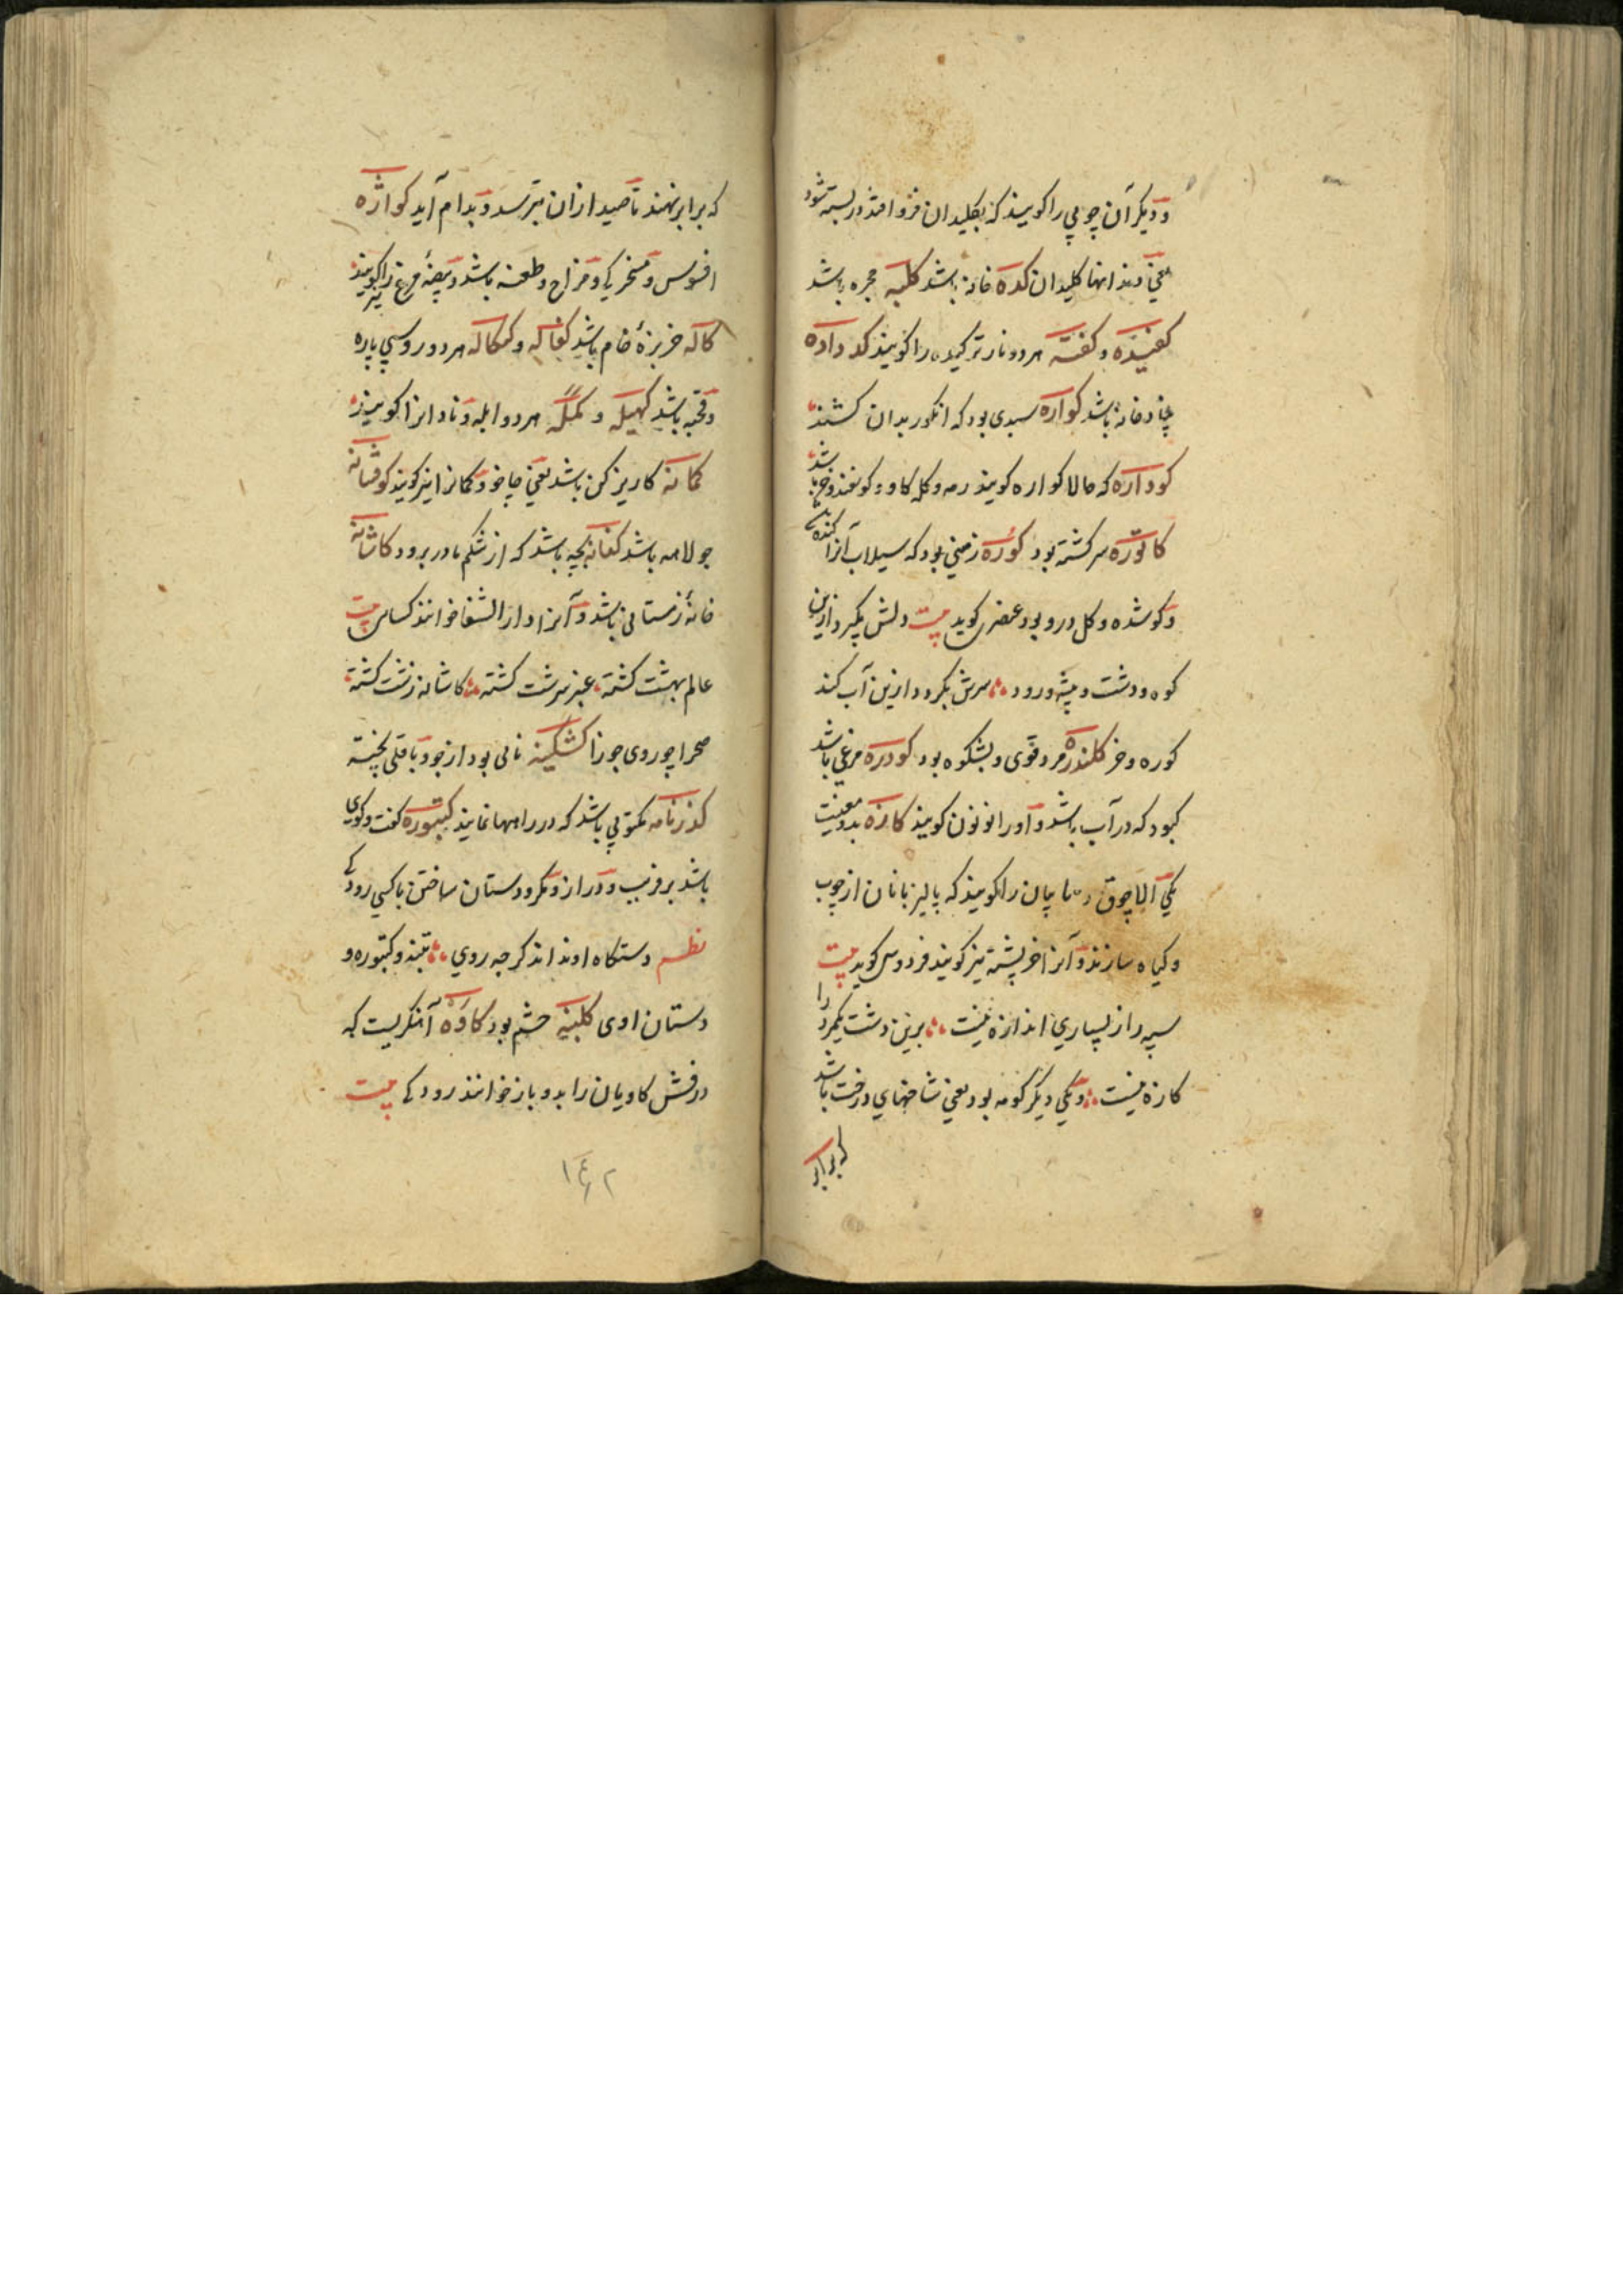 و دیکر آن چوبی را کویند که بکلیدان فرو افتد در بسته شود
یعنی دندانها کلیدان کده خانه باشد کلبه حجره باشد
کفیده و کفته هر دو نار ترکیده را کویند کدواده
بنیاد خانه باشد کواره سبدی بود که انکور بدان کشند
کوداره که حالا کواره کویند رمه و کله کاو و کوسفند و خر باشد
کاتوره سرکشته بود کوره زمینی بود که سیلاب آنرا کنده
و کو شده و کل درو بود عنصری کوید بیت دلش نکیرد ازین
کوه و دشت و بیشه و رود سرش نکردد ازین آب کند
کوره و خر کلندره مرد قوی و بشکوه بود کودره مرغی باشد
کبود که در آب باشد و او را نونون کویند کازه بدو معنیست
یکی آلاچوق و سایبان را کویند که پالیز بانان از چوب
و کیاه سازند و آنرا خرپشته نیز کویند فردوسی کوید بیت
سپه را ز بسیاری اندازه نیست برین دشت یکمرد را
کازه نیست و یکی دیکر کومه بود یعنی شاخهای درخت باشد
که برابر
که برابر نهند تا صید از ان بترسد و بدام آید کواژه
افسوس و مسخرکی و مزاح و طعنه باشد و بیضهٔ مرغ را نیز کویند
کاله خربزهٔ خام باشد کفاله و کمکاله هر دو روسپی باره
و قحبه باشد کهیله و کمله هر دو ابله و نادانرا کویند
کمانه کاریز کن باشد یعنی چاخو و کمانرا نیز کویند کوفشانه
جولاهه باشد کفانه بچه باشد که از شکم مادر برود کاشانه
خانهٔ زمستانی باشد و آنرا دار الشفا خوانند کسائی بیت
عالم بهشت کشته عنبر سرشت کشته کاشانه زشت کشته
صحرا چو روی حورا کشکینه نانی بود از جو و باقلی پخته
کذرنامه مکتوبی باشد که در راهها نمایند کبتوره کفت و کوی
باشد بر فریب و دراز و مکر و دستان ساختن با کسی رودکی
نظم دستکاه او نداند کز چه روی تنبد و کنبوره و
دستان اوی کلبنه خشم بود کاوه آهنکریست که
درفش کاویان را بدو باز خوانند رودکی بیت
۱۴۲